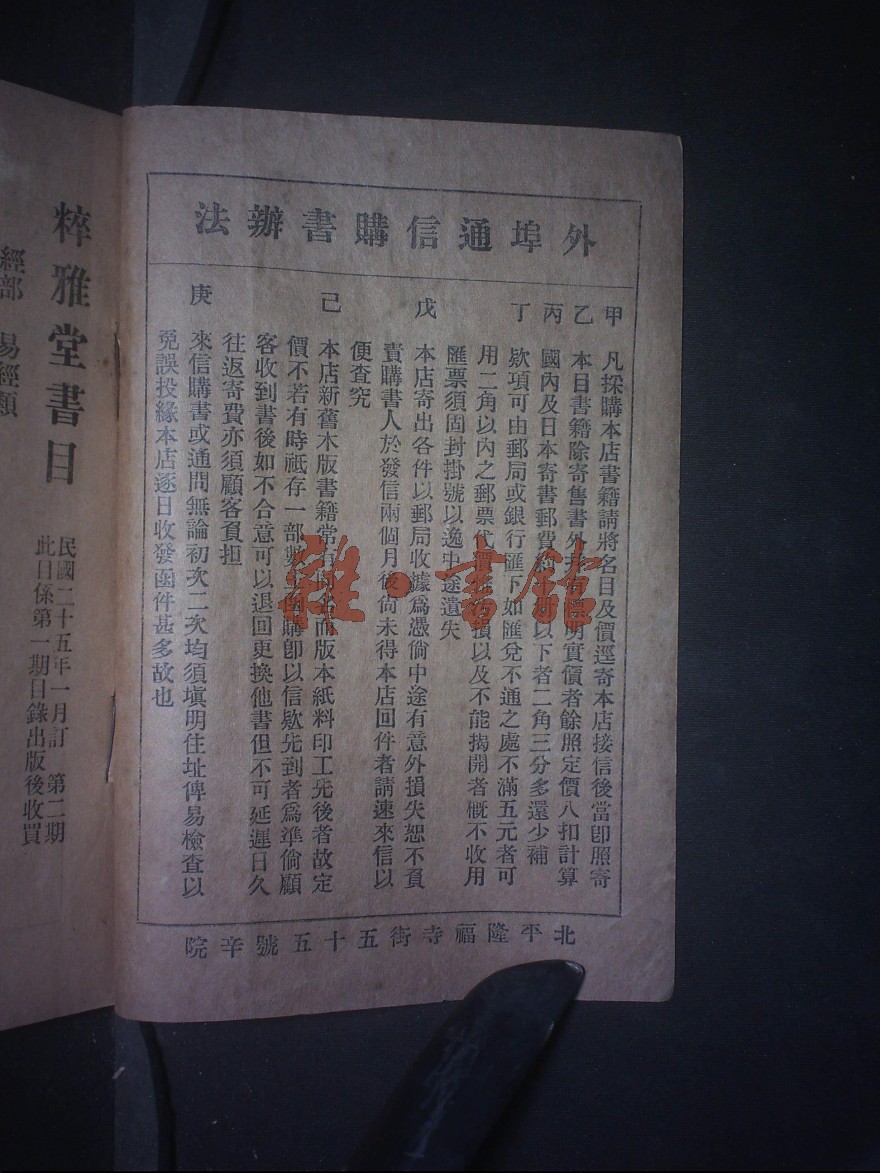 外埠通信購書辦法
甲 凡採購本店書籍請將名目及價逕寄本店接信後當卽照寄
乙 本目書籍除寄售書外 實價者餘照定價八扣計算
丙 國內及日本寄書郵費 以下者二角三分多還少補
丁 欵項可由郵局或銀行匯下如匯兌不通之處不滿五元者可
用二角以內之郵票代價 損以及不能揭開者槪不收用
匯票須固封掛號以逸中途遺失
戊 本店寄出各件以郵局收據爲憑倘中途有意外損失恕不負
責購書人於發信兩個月後尙未得本店回件者請速來信以
便查究
己 本店新舊木版書籍常有 而版本紙料印工先後者故定
價不若有時祇存一部數 函購卽以信欵先到者爲準倘顧
客收到書後如不合意可以退回更換他書但不可延遲日久
往返寄費亦須顧客負担
庚 來信購書或通問無論初次二次均須塡明住址俾易檢查以
免誤投緣本店逐日收發函件甚多故也
北平隆福寺街五十五號辛院
粹雅堂書目
民國二十五年一月訂 第二期
此目係第一期目錄出版後收買
經部 易經類
雜·書館